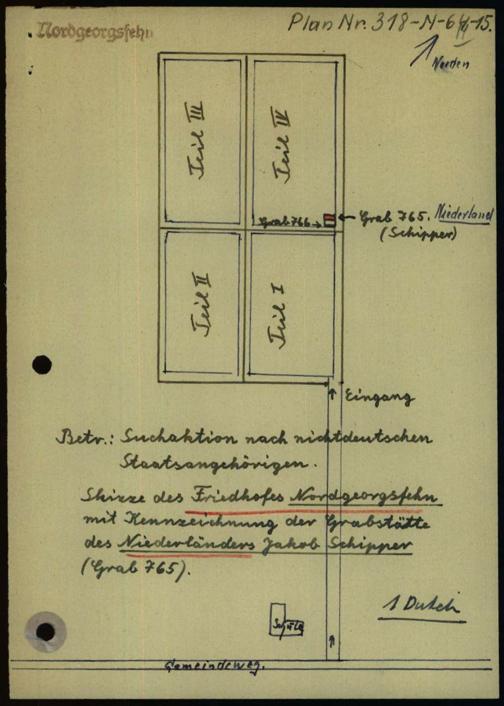 Nordgeorgsfehn
Plan Nr. 318-N-6
-15.
Norden
Teil III
Teil IV
Grab 766
Grab 765. Niederland
(Schipper)
Teil II
Teil I
Eingang
Betr.: Suchaktion nach nichtdeutschen
Staatsangehörigen.
Skizze des Friedhofes Nordgeorgsfehn
mit Kennzeichnung der Grabstätte
des Niederländers Jakob Schipper
(Grab 765).
1 Dutch
Schule
Gemeindeweg.